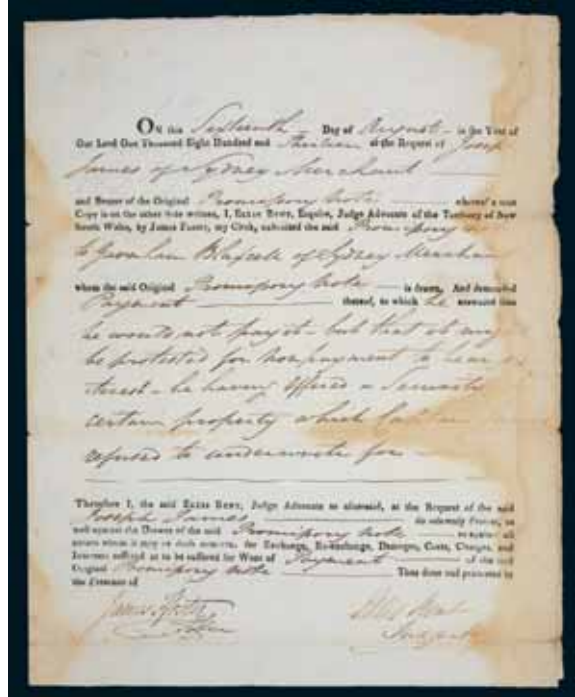 ON this Sixteenth Day of August in the Year of
Our Lord One Thousand Eight Hundred and Thirteen at the Request of Joseph
James of Sydney Merchant
and Bearer of the Original Promissory Note whereof a true
Copy is on the other side written, I, ELLIS BENT, Esquire, Judge Advocate of the Territory of New
South Wales, by James Foster, my Clerk, exhibited the said Promissory
to Garnham Blaxcell of Sydney Merchant
whom the said Original Promissory Note is drawn, And demanded
Payment thereof, to which he answered that
he would not pay it - but that it may
be protested for Non payment to bear
terest - he having offered a Security
certain property which
refused to underwrite for
Therefore I, the said ELLIS BENT, Judge Advocate as aforesaid, at the Request of the said
Joseph James do solemnly Protest, as
well against the Drawer of the said Promissory Note as against all
others whom it may or doth concern, for Exchange, Re-exchange, Damages, Costs, Charges, and
Interest suffered or to be suffered for Want of Payment of the said
Original Promissory Note Thus done and protested in
the Presence of
James Foster Ellis Bent